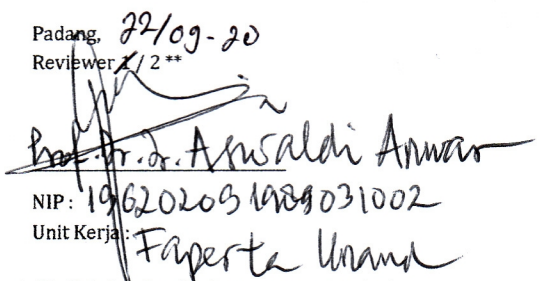 Padang, 22/09-20
Reviewer 1 / 2 **
Prof. Dr. Ir. Aswaldi Anwar
NIP : 196202091989031002
Unit Kerja : Faperta Unand